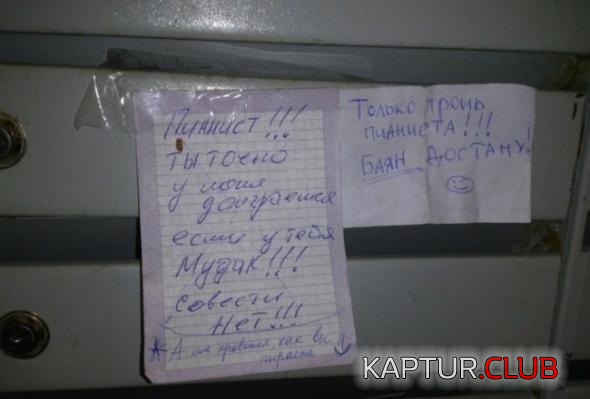 Пианист!!!
ты точно
у меня
доиграешся
если у тебя
Мудак!!!
совести
нет!!!
* А мне нравится, как вы
играете
Только тронь
пианиста!!!
БАЯН ДОСТАНУ!
KAPTUR.CLUB